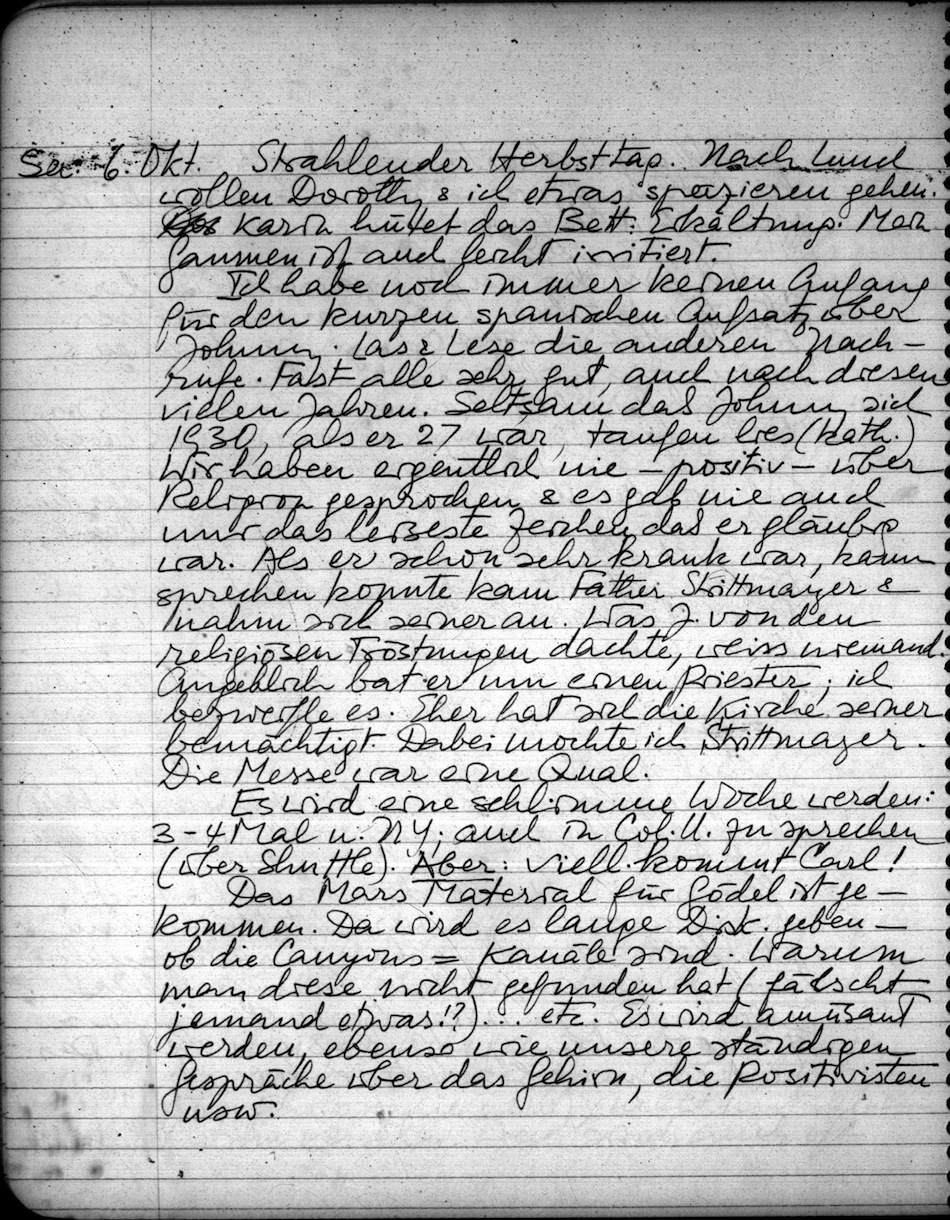 So. 6. Okt. Strahlender Herbsttag. Nach Lunch
wollen Dorothy & ich etwas spazieren gehen.
Karin hütet das Bett: Erkältung. Mein
Gaumen ist auch leicht irritiert.
Ich habe noch immer keinen Anfang
für den kurzen spanischen Aufsatz über
Johnny. Las & Lese die anderen Nach-
rufe. Fast alle sehr gut, auch nach diesen
vielen Jahren. Seltsam das Johnny sich
1930, als er 27 war, taufen lies (kath.)
Wir haben eigentlich nie – positiv – über
Religion gesprochen & es gab nie auch
nur das leiseste Zeichen das er gläubig
war. Als er schon sehr krank war, kaum
sprechen konnte kam Father Strittmayer &
nahm sich seiner an. Was J. von den
religiösen Tröstungen dachte, weiss niemand.
Angeblich bat er um einen Priester; ich
bezweifle es. Eher hat sich die Kirche seiner
bemächtigt. Dabei mochte ich Strittmayer.
Die Messe war eine Qual.
Es wird eine schlimme Woche werden:
3-4 Mal n. NY; auch in Col. U. zu sprechen
(über Shuttle). Aber: viell. kommt Carl!
Das Mars Material für Gödel ist ge-
kommen. Da wird es lange Disk. geben –
ob die Canyons = Kanäle sind. Warum
man diese nicht gefunden hat (fälscht
jemand etwas!?)... etc. Es wird amüsant
werden, ebenso wie unsere ständigen
Gespräche über das Gehirn, die Positivisten
usw.